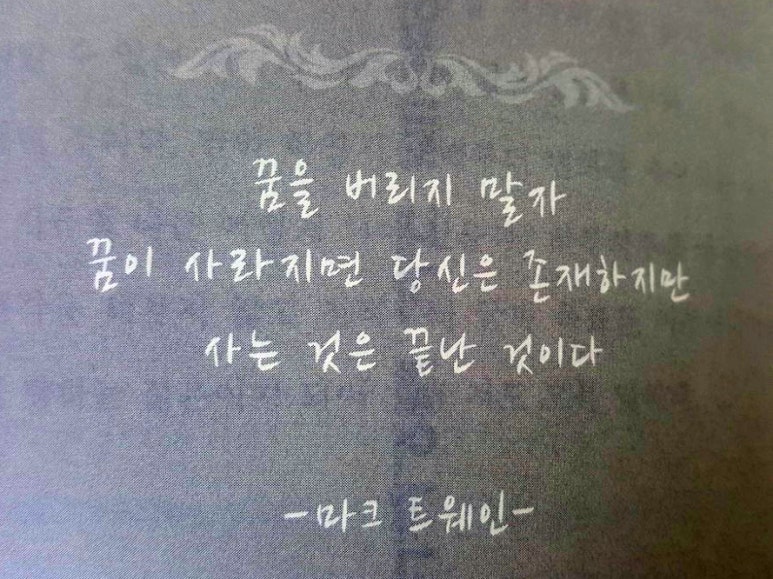 꿈을 버리지 말자
꿈이 사라지면 당신은 존재하지만
사는 것은 끝난 것이다
-마크 트웨인-